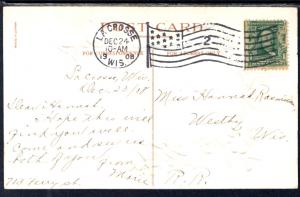 POST CARD
LA CROSSE
DEC 24
10-AM
1908
WIS.
2
La Crosse, Wis
Dec. 23/08
Dear Hannah:
Hope this will
find you well.
Come and see us
both of you
from
Marie
Miss Hannah
Westby
Wis.
R. R.